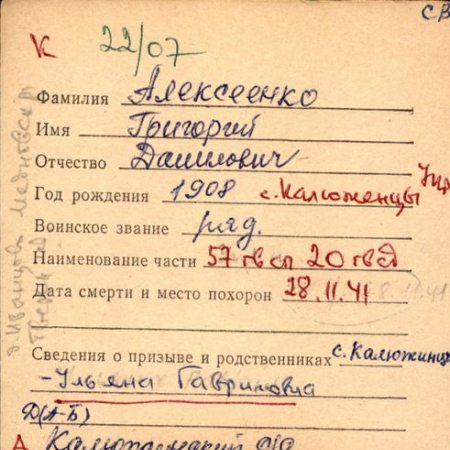 С В
К 22/07
Фамилия Алексеенко
Имя Григорий
Отчество Данилович
Год рождения 1908 с. Калюженцы
Воинское звание ряд.
Наименование части 57 гв сп 20 гв сд
Дата смерти и место похорон 28.11.41
Сведения о призыве и родственниках с. Калюжинц
- Ульяна Гавриловна
Д(А-Б)
А